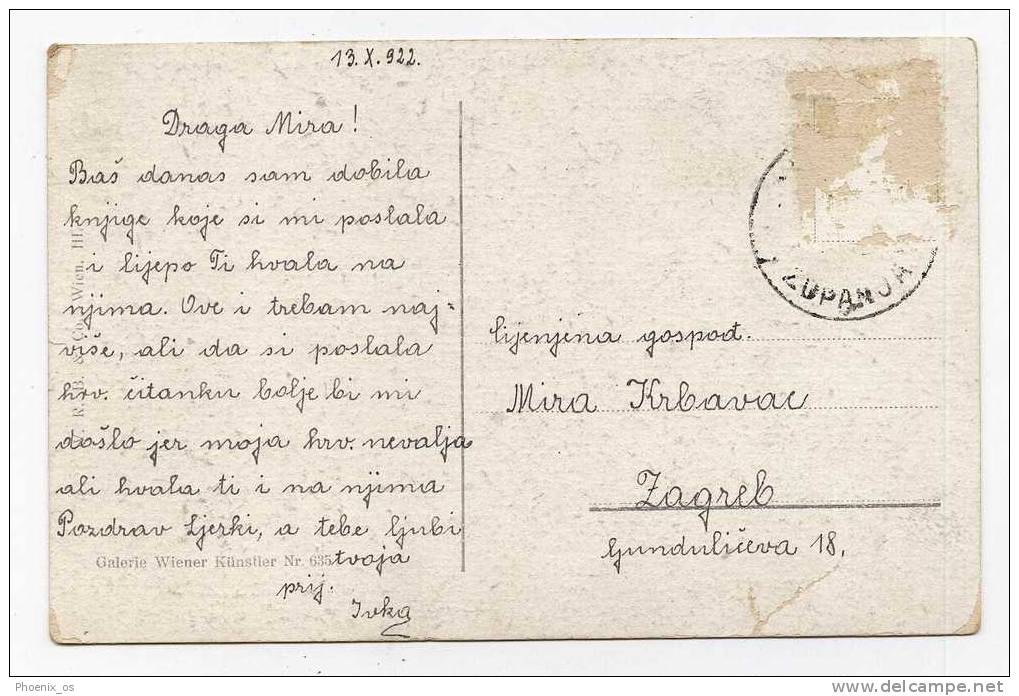 13.X.922.
Draga Mira!
Baš danas sam dobila
knjige koje si mi poslala
i lijepo Ti hvala na
njima. Ove i trebam naj-
više, ali da si poslala
hrv. čitanku bolje bi mi
došlo jer moja hrv. nevalja
ali hvala ti i na njima
Pozdrav Ljerki, a tebe ljubi
tvoja
prij.
Ivka
Galerie Wiener Künstler Nr. 635
Wien, III
ZUPANJA
Cijenjena gospođ.
Mira Krbavac
Zagreb
Gundulićeva 18.
Phoenix_os
delcampe.net